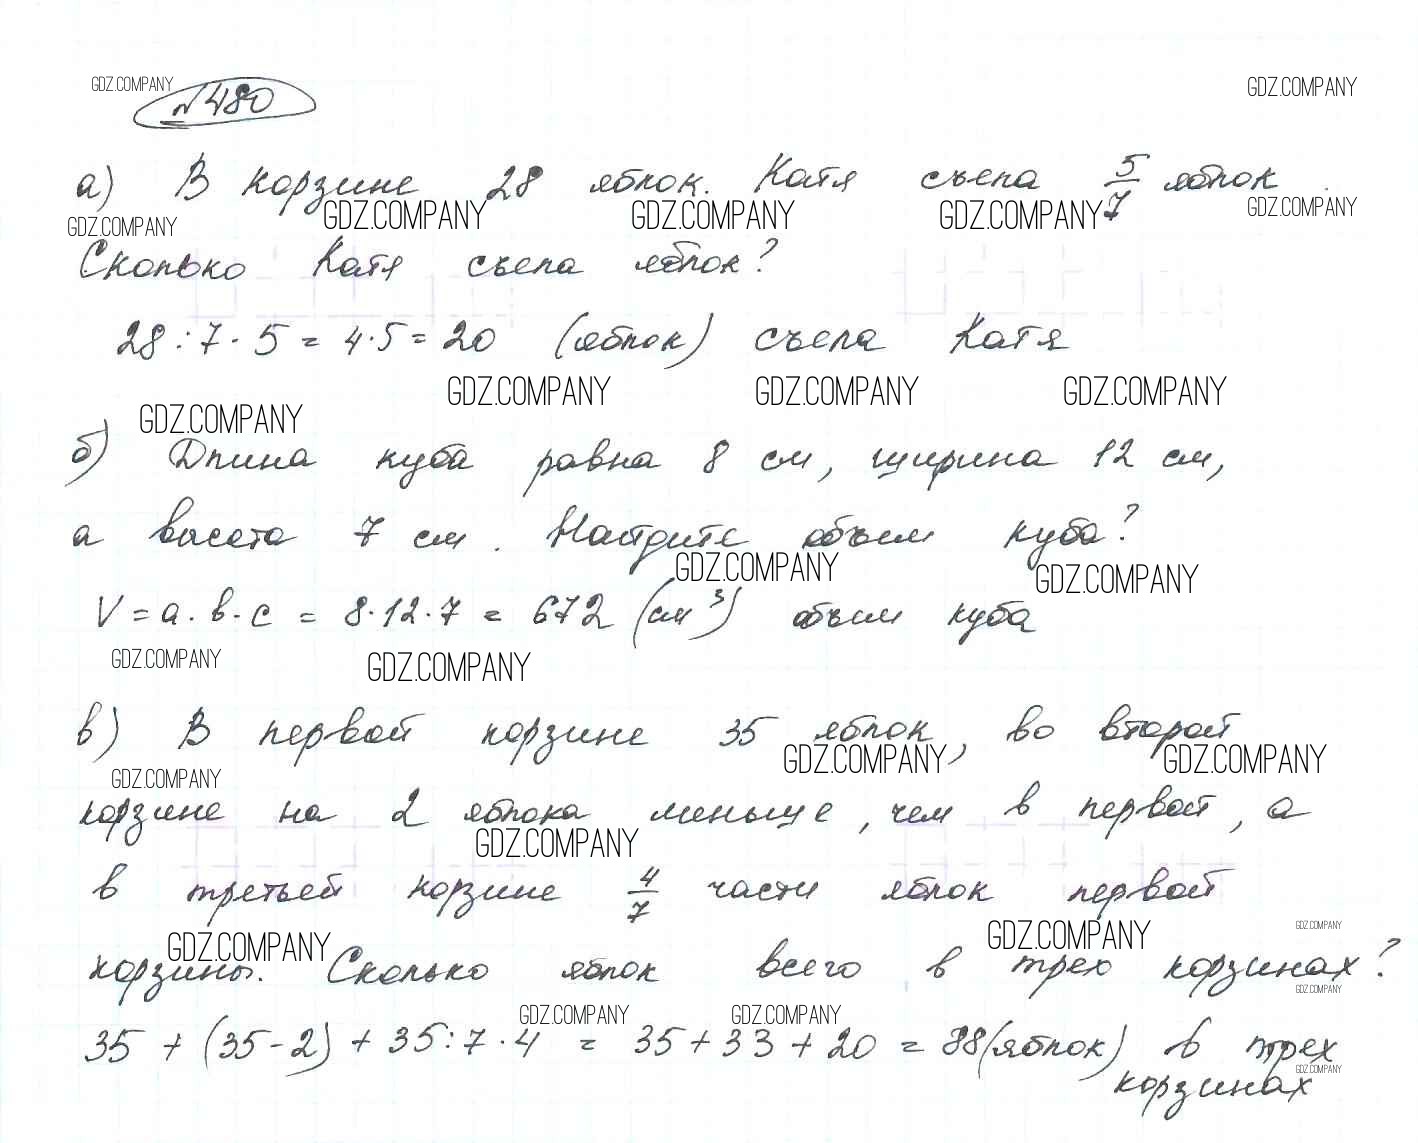 GDZ.COMPANY GDZ.COMPANY
№480
а) В корзине 28 яблок. Катя съела 5/7 яблок
GDZ.COMPANY GDZ.COMPANY GDZ.COMPANY GDZ.COMPANY GDZ.COMPANY
Сколько Катя съела яблок?
28 : 7 · 5 = 4 · 5 = 20 (яблок) съела Катя
GDZ.COMPANY GDZ.COMPANY GDZ.COMPANY GDZ.COMPANY
б) Длина куба равна 8 см, ширина 12 см,
а высота 7 см. Найдите объем куба?
GDZ.COMPANY GDZ.COMPANY
V = a · b · c = 8 · 12 · 7 = 672 (см³) объем куба
GDZ.COMPANY GDZ.COMPANY
в) В первой корзине 35 яблок, во второй
GDZ.COMPANY GDZ.COMPANY GDZ.COMPANY
корзине на 2 яблока меньше, чем в первой, а
GDZ.COMPANY
в третьей корзине 4/7 части яблок первой
GDZ.COMPANY GDZ.COMPANY GDZ.COMPANY
корзины. Сколько яблок всего в трех корзинах?
GDZ.COMPANY
GDZ.COMPANY GDZ.COMPANY
35 + (35 - 2) + 35 : 7 · 4 = 35 + 33 + 20 = 88 (яблок) в трех
GDZ.COMPANY
корзинах